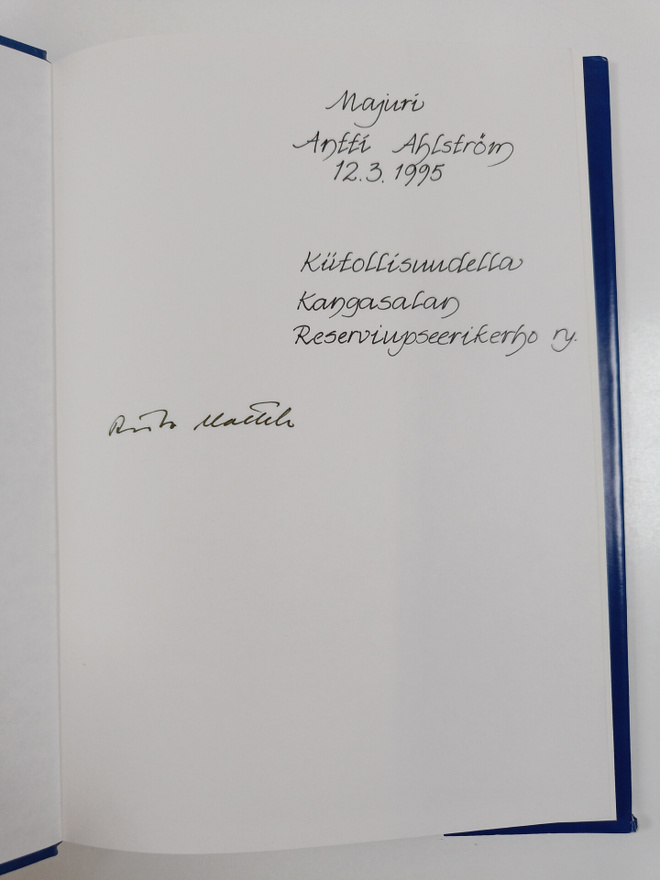 Majuri
Antti Ahlström
12.3.1995
Kiitollisuudella
Kangasalan
Reserviupseerikerho ry.